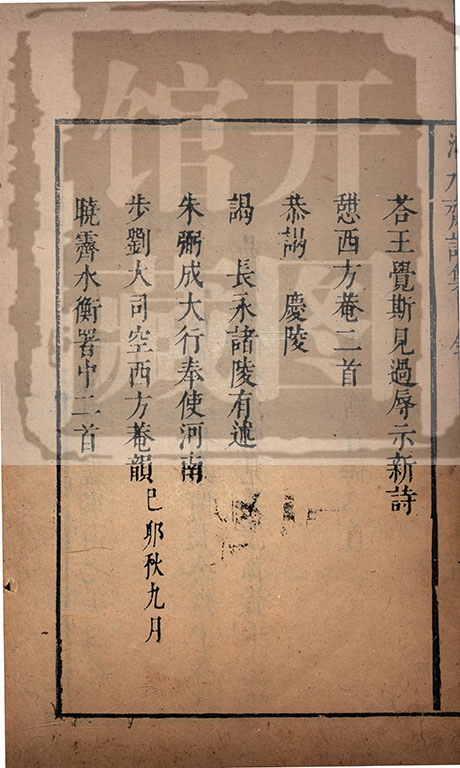 答王覺斯見過辱示新詩
憩西方菴二首
恭謁　慶陵
謁　長永諸陵有述
朱弼成大行奉使河南
步劉大司空西方菴韻己卯秋九月
曉霽水衡署中二首
开图
馆藏